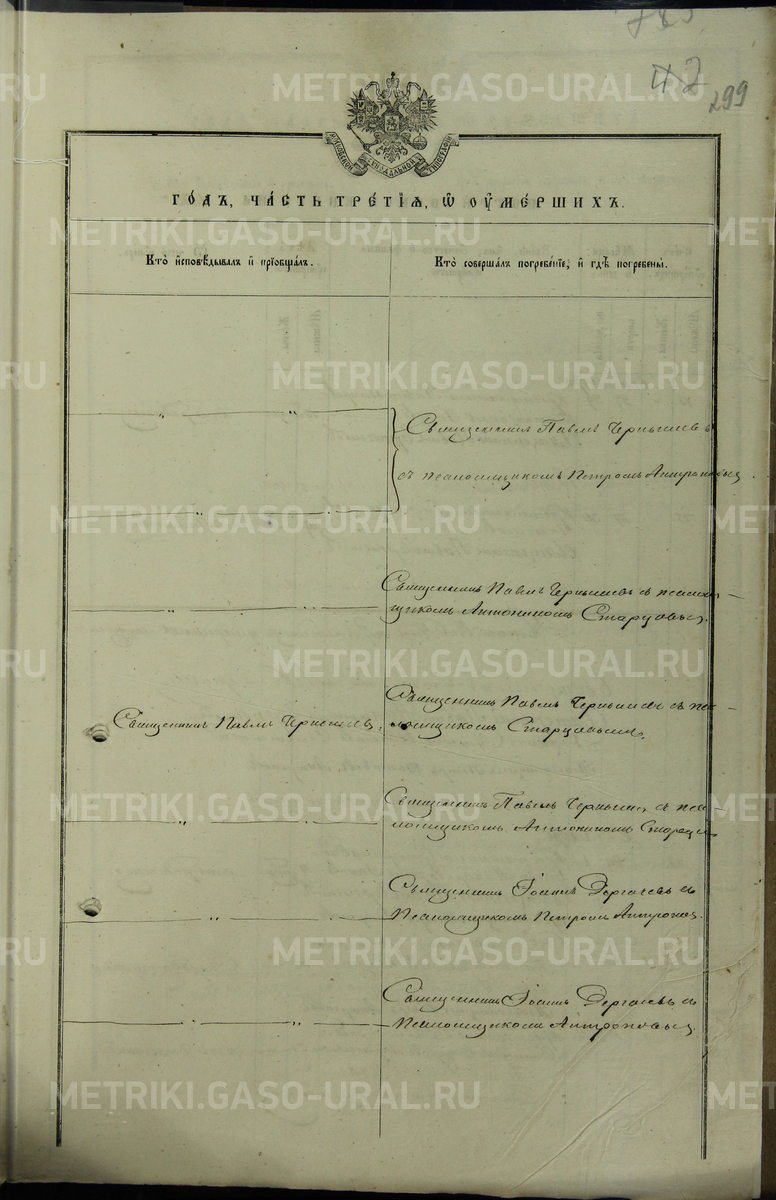 299
МОСКОВСКОЙ СѴНОДАЛЬНОЙ ТИПОГРАФІИ
ГОДЪ, ЧАСТЬ ТРЕТІЯ, Ѡ ОУМЕРШИХЪ.
Кто исповѣдывалъ и пріобщалъ.
Кто совершалъ погребеніе, и гдѣ погребены.
Священникъ Павелъ Чернышевъ
съ псаломщикомъ Петромъ Антроповымъ
Священникъ Павелъ Чернышевъ съ псалом-
щикомъ Антониномъ Старцовымъ.
Священникъ Павелъ Чернышевъ.
Священникъ Павелъ Чернышевъ съ пса-
ломщикомъ Старцовымъ.
Священникъ Павелъ Чернышевъ съ пса-
ломщикомъ Антониномъ
Священникъ Іоаннъ Дергачевъ съ
Псаломщикомъ Петромъ Антропов.
Священникъ Іоаннъ Дергачевъ съ
Псаломщикомъ Антроповымъ
METRIKI.GASO-URAL.RU